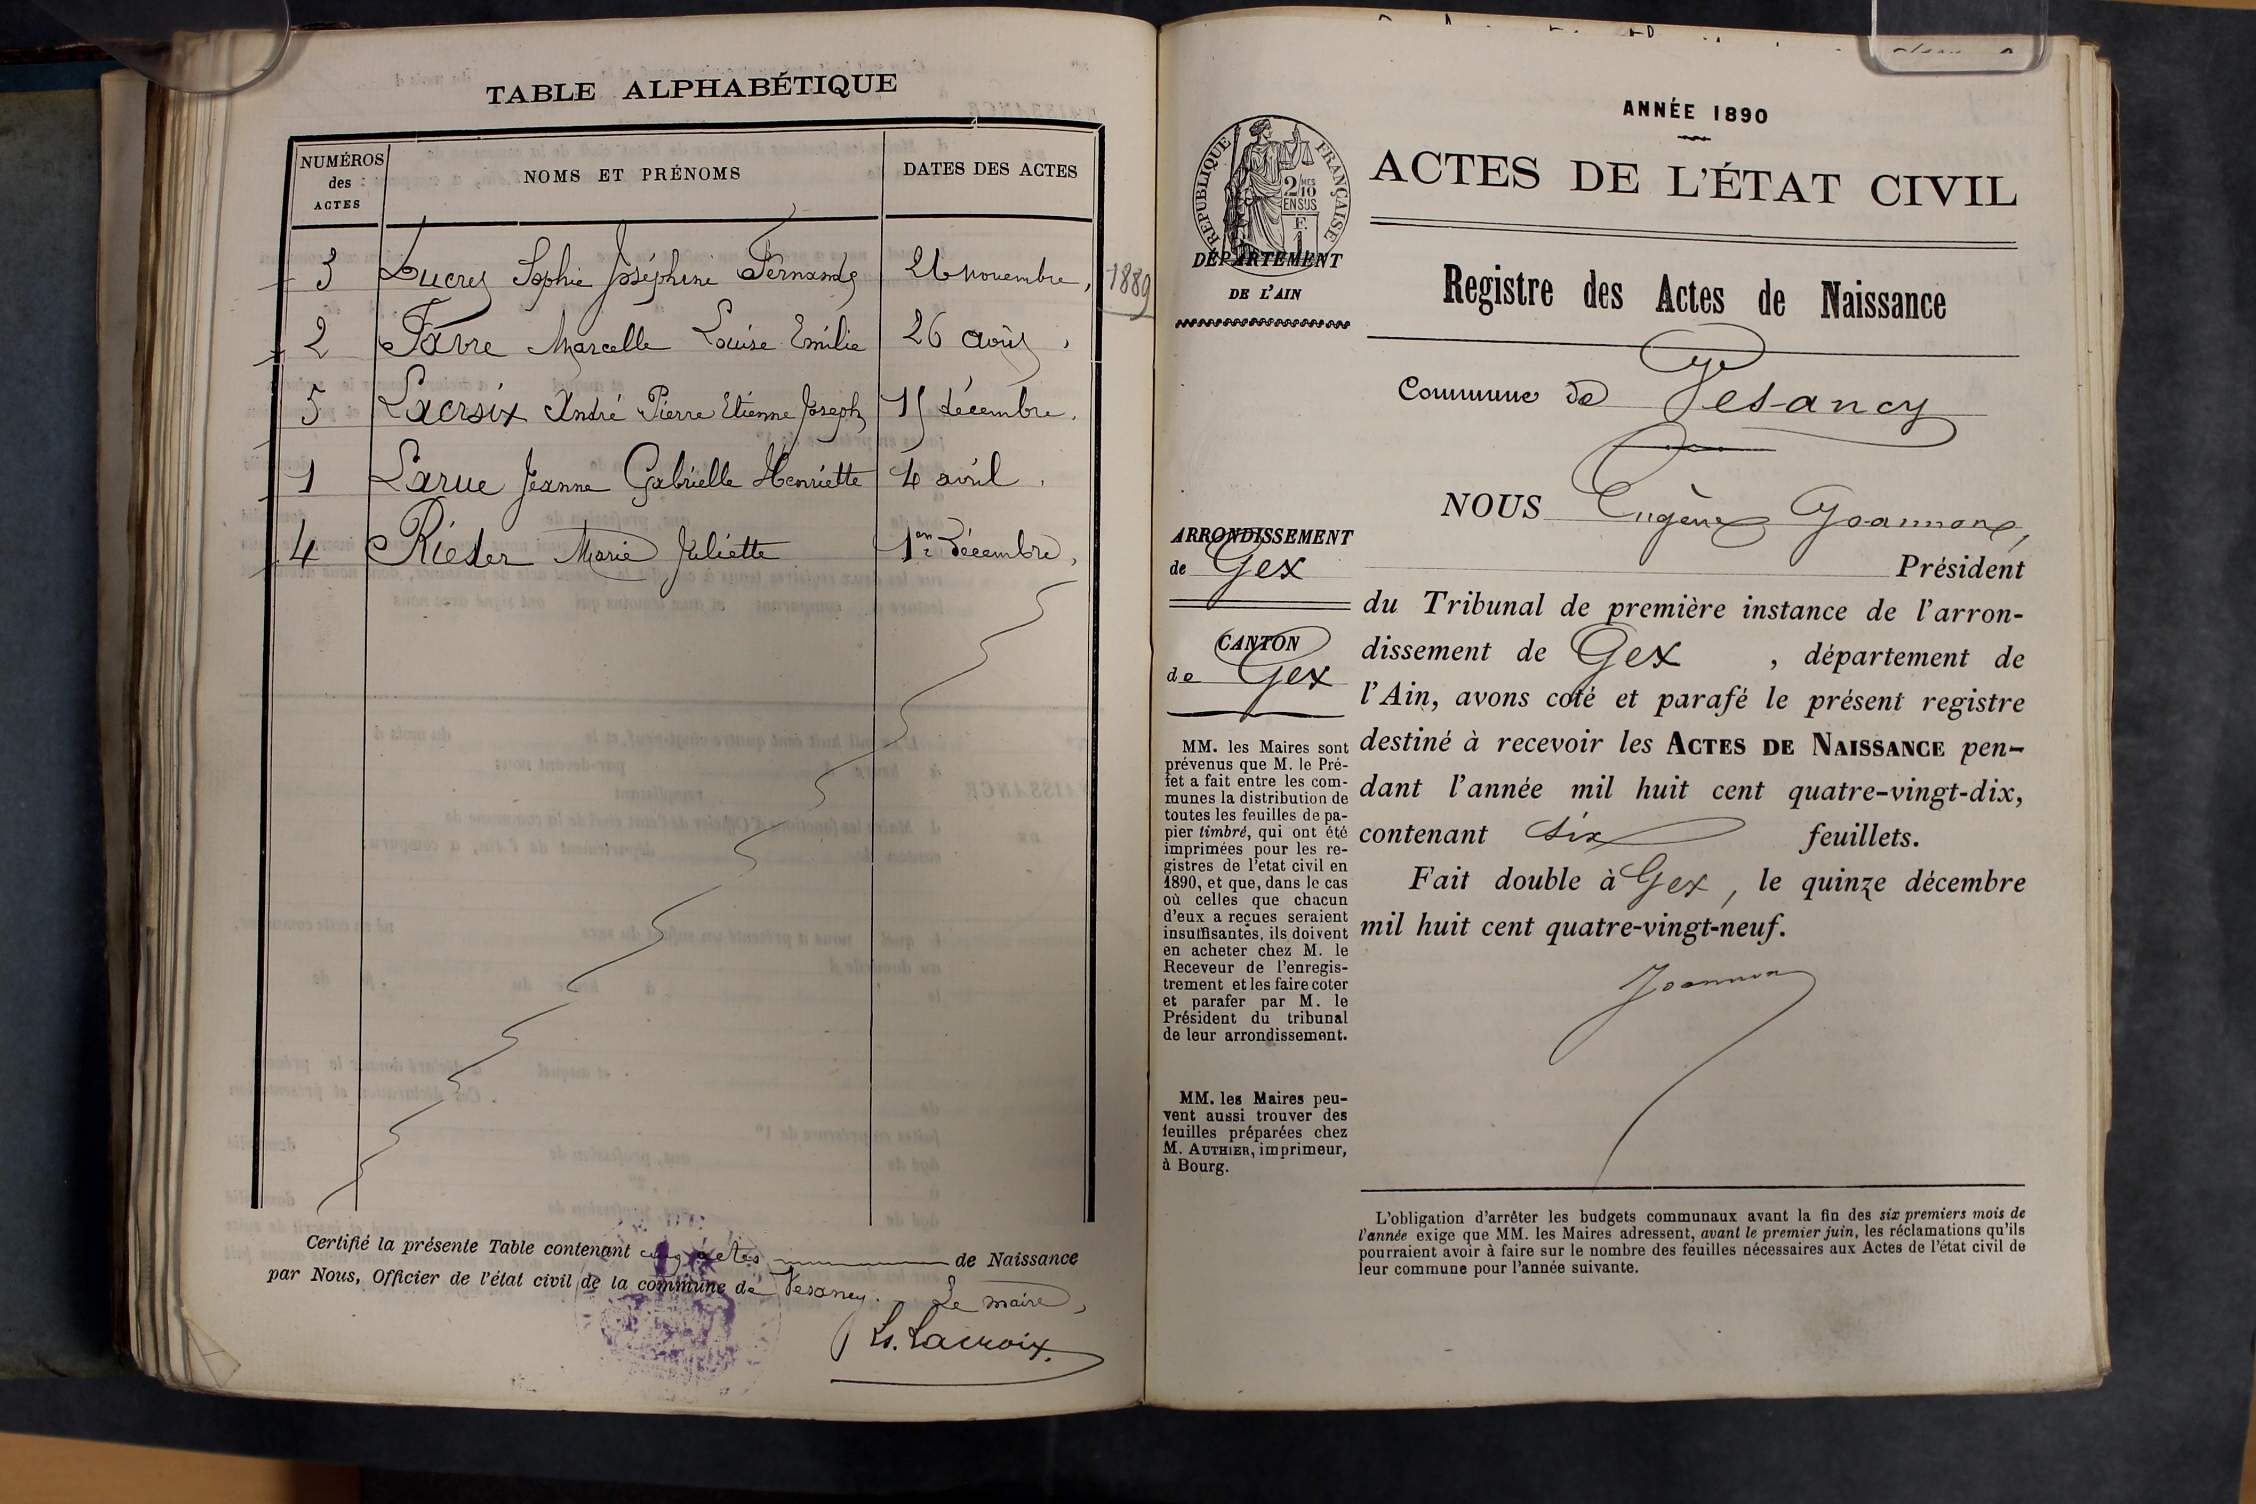 TABLE ALPHABÉTIQUE
NUMÉROS des ACTES
NOMS ET PRÉNOMS
DATES DES ACTES
3 Ducrey Sophie Joséphine Fernande 26 novembre,
1889
2 Favre Marcelle Louise Emilie 26 août,
5 Lacroix André Pierre Etienne Joseph 15 décembre.
1 Larue Jeanne Gabrielle Henriette 4 avril.
4 Rieder Marie Juliette 1er décembre,
Certifié la présente Table contenant cinq actes de Naissance
par Nous, Officier de l'état civil de la commune de Vesancy. Le maire,
Ls. Lacroix.
ANNÉE 1890
RÉPUBLIQUE FRANÇAISE
2/10 MES
EN SUS
F.
1
DÉPARTEMENT
DE L'AIN
ACTES DE L'ÉTAT CIVIL
Registre des Actes de Naissance
Commune de Vesancy
ARRONDISSEMENT
de Gex
CANTON
de Gex
MM. les Maires sont
prévenus que M. le Pré-
fet a fait entre les com-
munes la distribution de
toutes les feuilles de pa-
pier timbré, qui ont été
imprimées pour les re-
gistres de l'etat civil en
1890, et que, dans le cas
où celles que chacun
d'eux a reçues seraient
insuffisantes, ils doivent
en acheter chez M. le
Receveur de l'enregis-
trement et les faire coter
et parafer par M. le
Président du tribunal
de leur arrondissement.
MM. les Maires peu-
vent aussi trouver des
feuilles préparées chez
M. AUTHIER, imprimeur,
à Bourg.
NOUS Eugène Joannon,
Président
du Tribunal de première instance de l'arron-
dissement de Gex, département de
l'Ain, avons coté et parafé le présent registre
destiné à recevoir les ACTES DE NAISSANCE pen-
dant l'année mil huit cent quatre-vingt-dix,
contenant six feuillets.
Fait double à Gex, le quinze décembre
mil huit cent quatre-vingt-neuf.
Joannon
L'obligation d'arrêter les budgets communaux avant la fin des six premiers mois de
l'année exige que MM. les Maires adressent, avant le premier juin, les réclamations qu'ils
pourraient avoir à faire sur le nombre des feuilles nécessaires aux Actes de l'état civil de
leur commune pour l'année suivante.